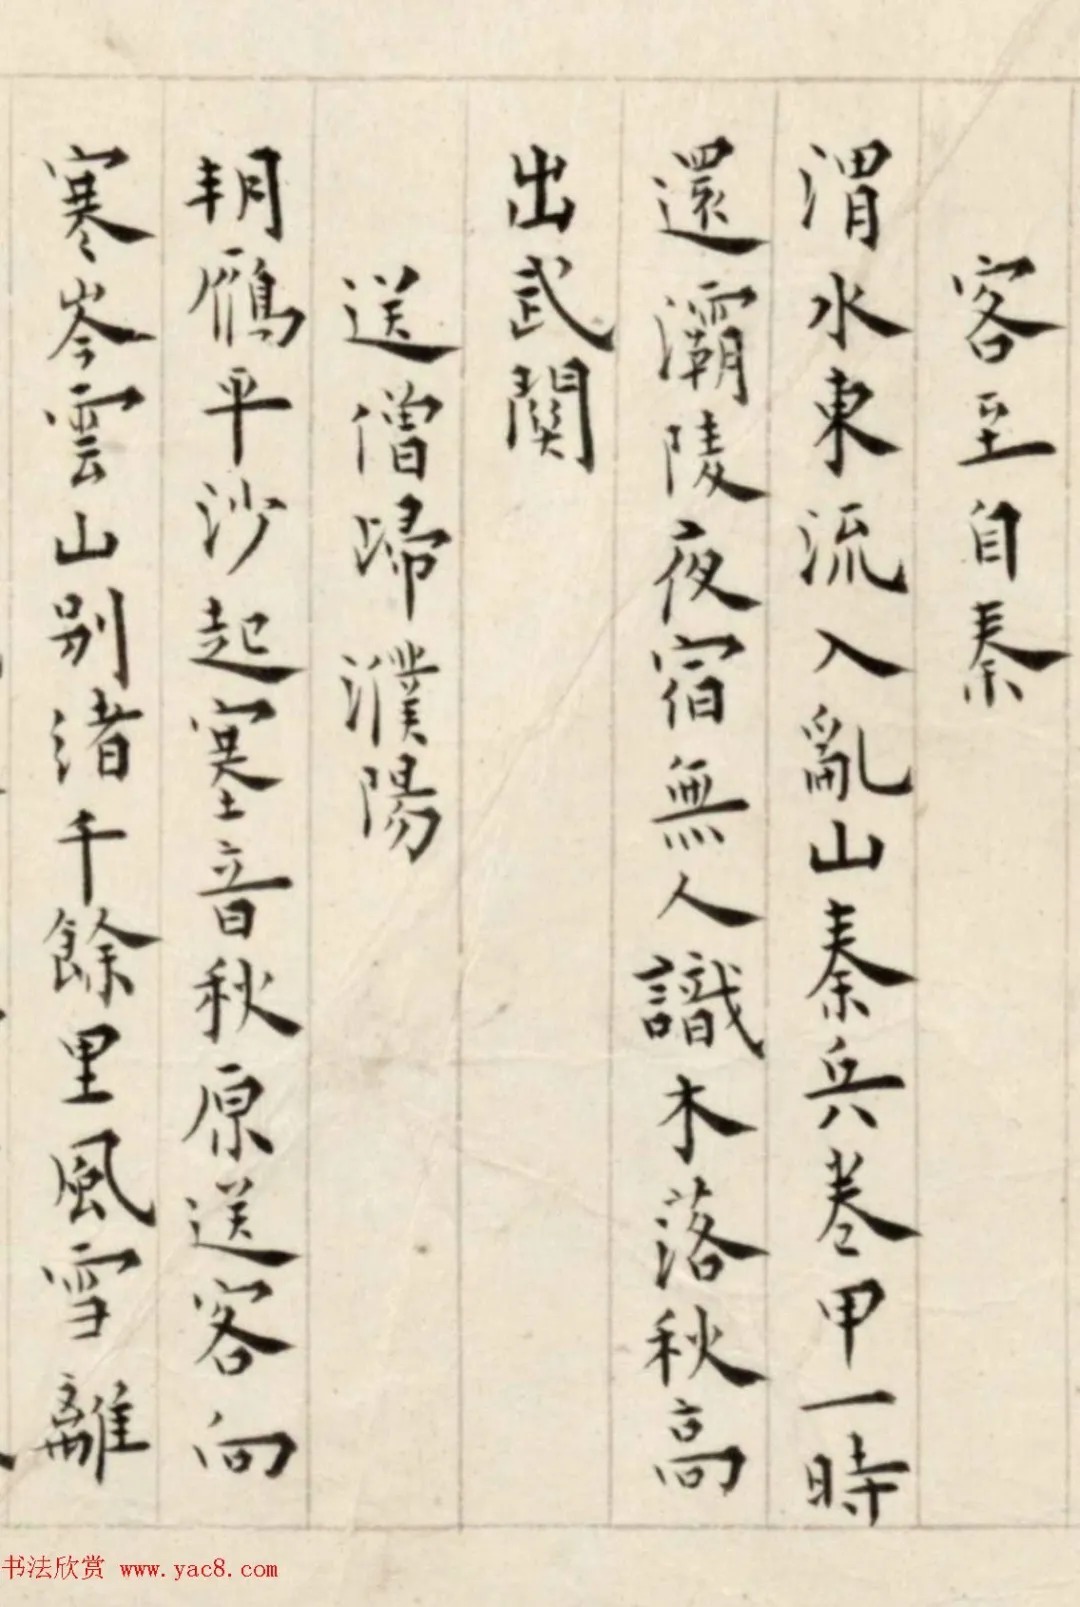 客至自秦
渭水東流入亂山秦兵卷甲一時
還灞陵夜宿無人識木落秋高
出武關
送僧歸濮陽
朔鴈平沙起塞音秋原送客向
寒岑雲山別渚千餘里風雪離
书法欣赏 www.yac8.com